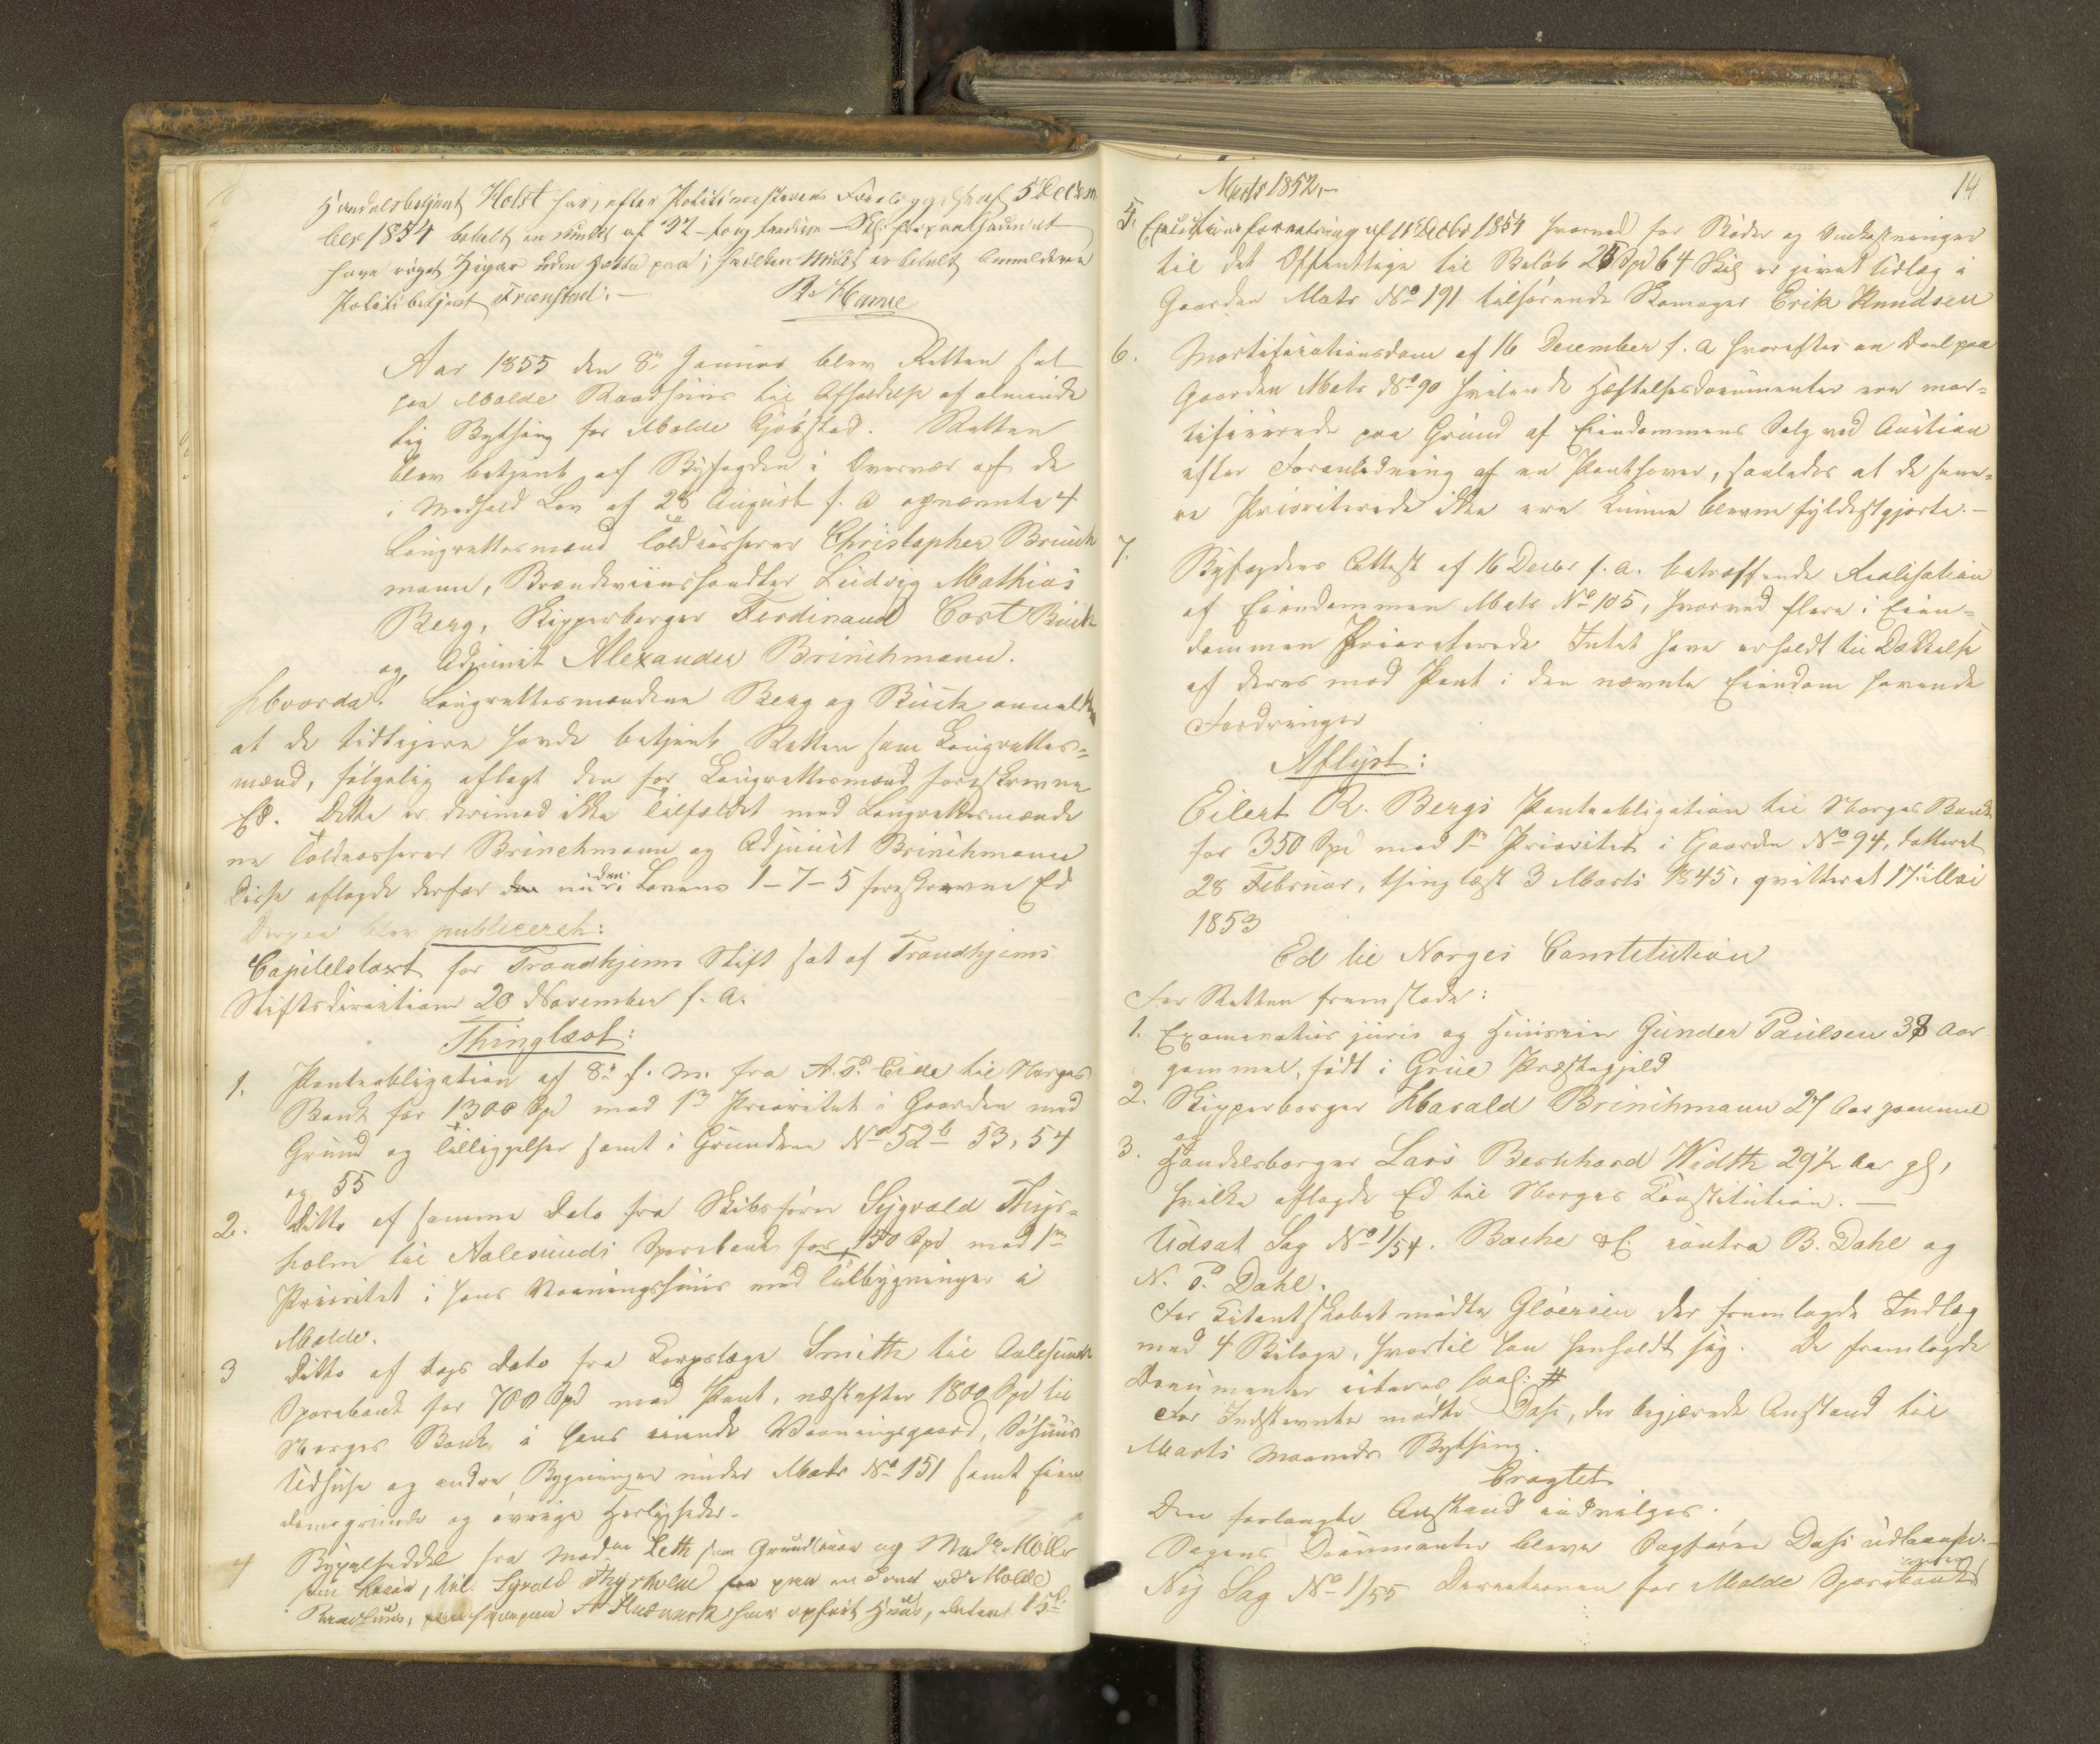 Handelsbetjent Holst har, efter Politimesterens Forelæg af 5 Decem
ber 1854 betalt en Mulct af 32 – to og tredive – Sk: for paa Gaden at
have røget Cigar uden Hætte paa; hvilken Mulct er betalt Anmelderen
Politibetjent Frænstad. –
Aar 1855 den 8de Januar blev Retten sat
paa Molde Raadhuus til Afholdelse af alminde
lig Bything for Molde Kjøbstad. Retten
blev betjent af Byfogden i Overvær af de
i Medhold Lov af 28 August f. A opnævnte 4
Laugrettesmænd Toldkasserer Christopher Brinch
mann, Brændeviinshandler Ludvig Mathias
Berg, Skipperborger Ferdinand Cort Buch
og Adjunct Alexander Brinchmann.
Hvorda! Laugrettesmændene Berg og Buch anmeldte
at de tidligere havde betjent Retten som Laugrettes=
mænd, følgelig aflagt den for Laugrettesmænd foreskrevne
Ed. Dette er derimod ikke Tilfældet med Laugrettesmænde
ne Toldkasserer Brinchmann og Adjunct Brinchmann
Disse aflagde derfor den i Lovens 1–7–5 foreskrevne Ed
Derpaa blev publiceret:
Capitelstaxt for Trondhjems Stift sat af Trondhjems
Stiftsdirection 20 November f. A.
Thinglæst:
1. Panteobligation af 8de f. M. fra A. P. Eide til Norges
Bank for 1300 Spd mod 1ste Prioritet i Gaarden med
Grund og Tilliggelser samt i Grundene No 52b 53, 54
og 55
2. Ditto af samme Dato fra Skibsfører Sygvald Thyr=
holm til Aalesunds Sparebank for 150 Spd mod 1ste
Prioritet i hans Vaaningshuus med Tilbygninger i
Molde.
3 Ditto af dags Dato fra Korpslæge Smith til Aalesunds
Sparebank for 700 Spd mod Pant, næst efter 1800 Spd til
Norges Bank i hans eiende Vaaningsgaard, Søhuus
Udhuse og andre Bygninger under Matr No 151 samt Eien
domsgrunde og øvrige Herligheder.
4 Bygselseddel fra Madme Leth som Grundeier og Madme Møller
til Sygvald Thyrholm paa en Tomt ved Molde
14
Marts 1852. –
5. Executionsforretning af 11te Decbr 1854 hvorved for Bøder og Omkostninger
til det Offentlige til Beløb 25 Spd 64 Sk er givet Udlæg i
Gaarden Matr No 191 tilhørende Skomager Erik Knudsen
6. Mortificationsdom af 16 December f. A hvorefter en Deel paa
Gaarden Matr No 90 hvilende Hæftelsesdocumenter ere mor=
tificerede paa Grund af Eiendommens Salg ved Auction
efter Foranledning af en Panthaver, saaledes at de sene=
re Prioriterede ikke ere kunne blevne fyldestgjorte. –
7. Byfogdens Attest af 16 Decbr f. A. betræffende Realisation
af Eiendommen Matr No 105, hvorved flere i Eien=
dommen Prioriterede Intet have erholdt til Dækkelse
af deres mod Pant i den nævnte Eiendom havende
Fordringer
Aflyst:
Eilert R. Bergs Panteobligation til Norges Bank
for 350 Spd mod 1ste Prioritet i Gaarden No 94, datteret
28 Februar, thinglæst 3 Marts 1845, qvitteret 17de Mai
1853
Ed til Norges Constitution
For Retten fremstode:
1. Examinatus juris og Gunder Paulsen 38 Aar
gammel, født i Grue Præstegjeld
2. Skipperborger Harald Brinchmann 27 Aar gammel
og
3. Handelsborger Lars Bernhard Width 29½ Aar gl,
hvilke aflagde Ed til Norges Constitution. –
Udsat Sag No 1/54. Bache & C contra B. Dahl og
N. P. Dahl.
For Citantskabet mødte Gløersen der fremlagde Indlæg
med 4 Bilage, hvortil han henholdt sig. De fremlagde
Documenter citeres saal: #
For Indstævnte mødte Dass, der begjærede Anstand til
Marts Maaneds Bything.
Eragtet
Den forlangte Anstand indvilges.
Sagens Documenter bleve Sagfører Dass udlaante. –
Ny Sag No 1/55 Directionen for Molde Sparebank